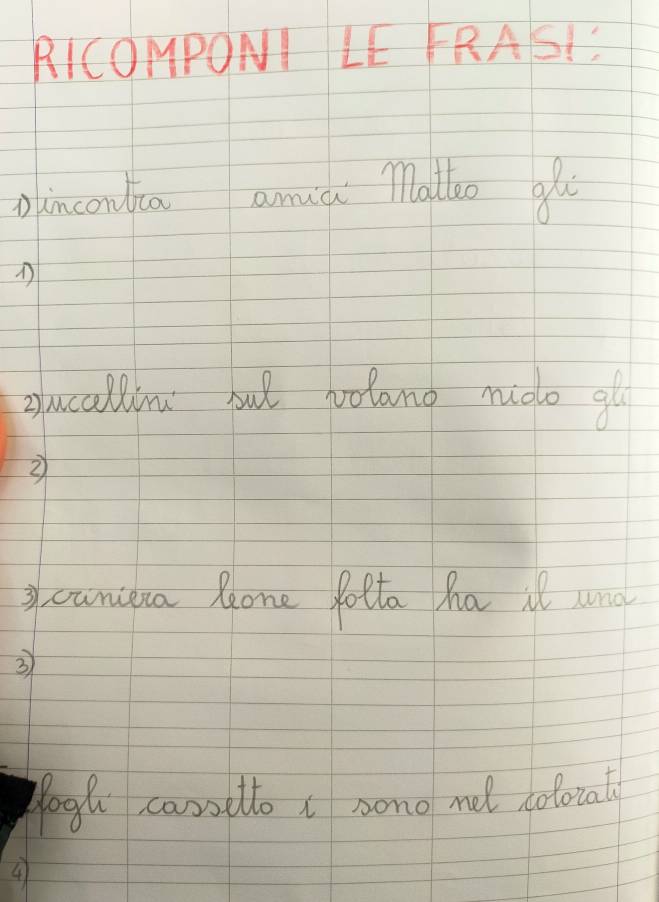 RICOMPONI LE FRASI:
1) incontra amici Matteo gli
1)
2) uccellini sul volano nido gli
2)
3) criniera leone folta ha il una
3)
fogli cassetto i sono nel colorati
4)